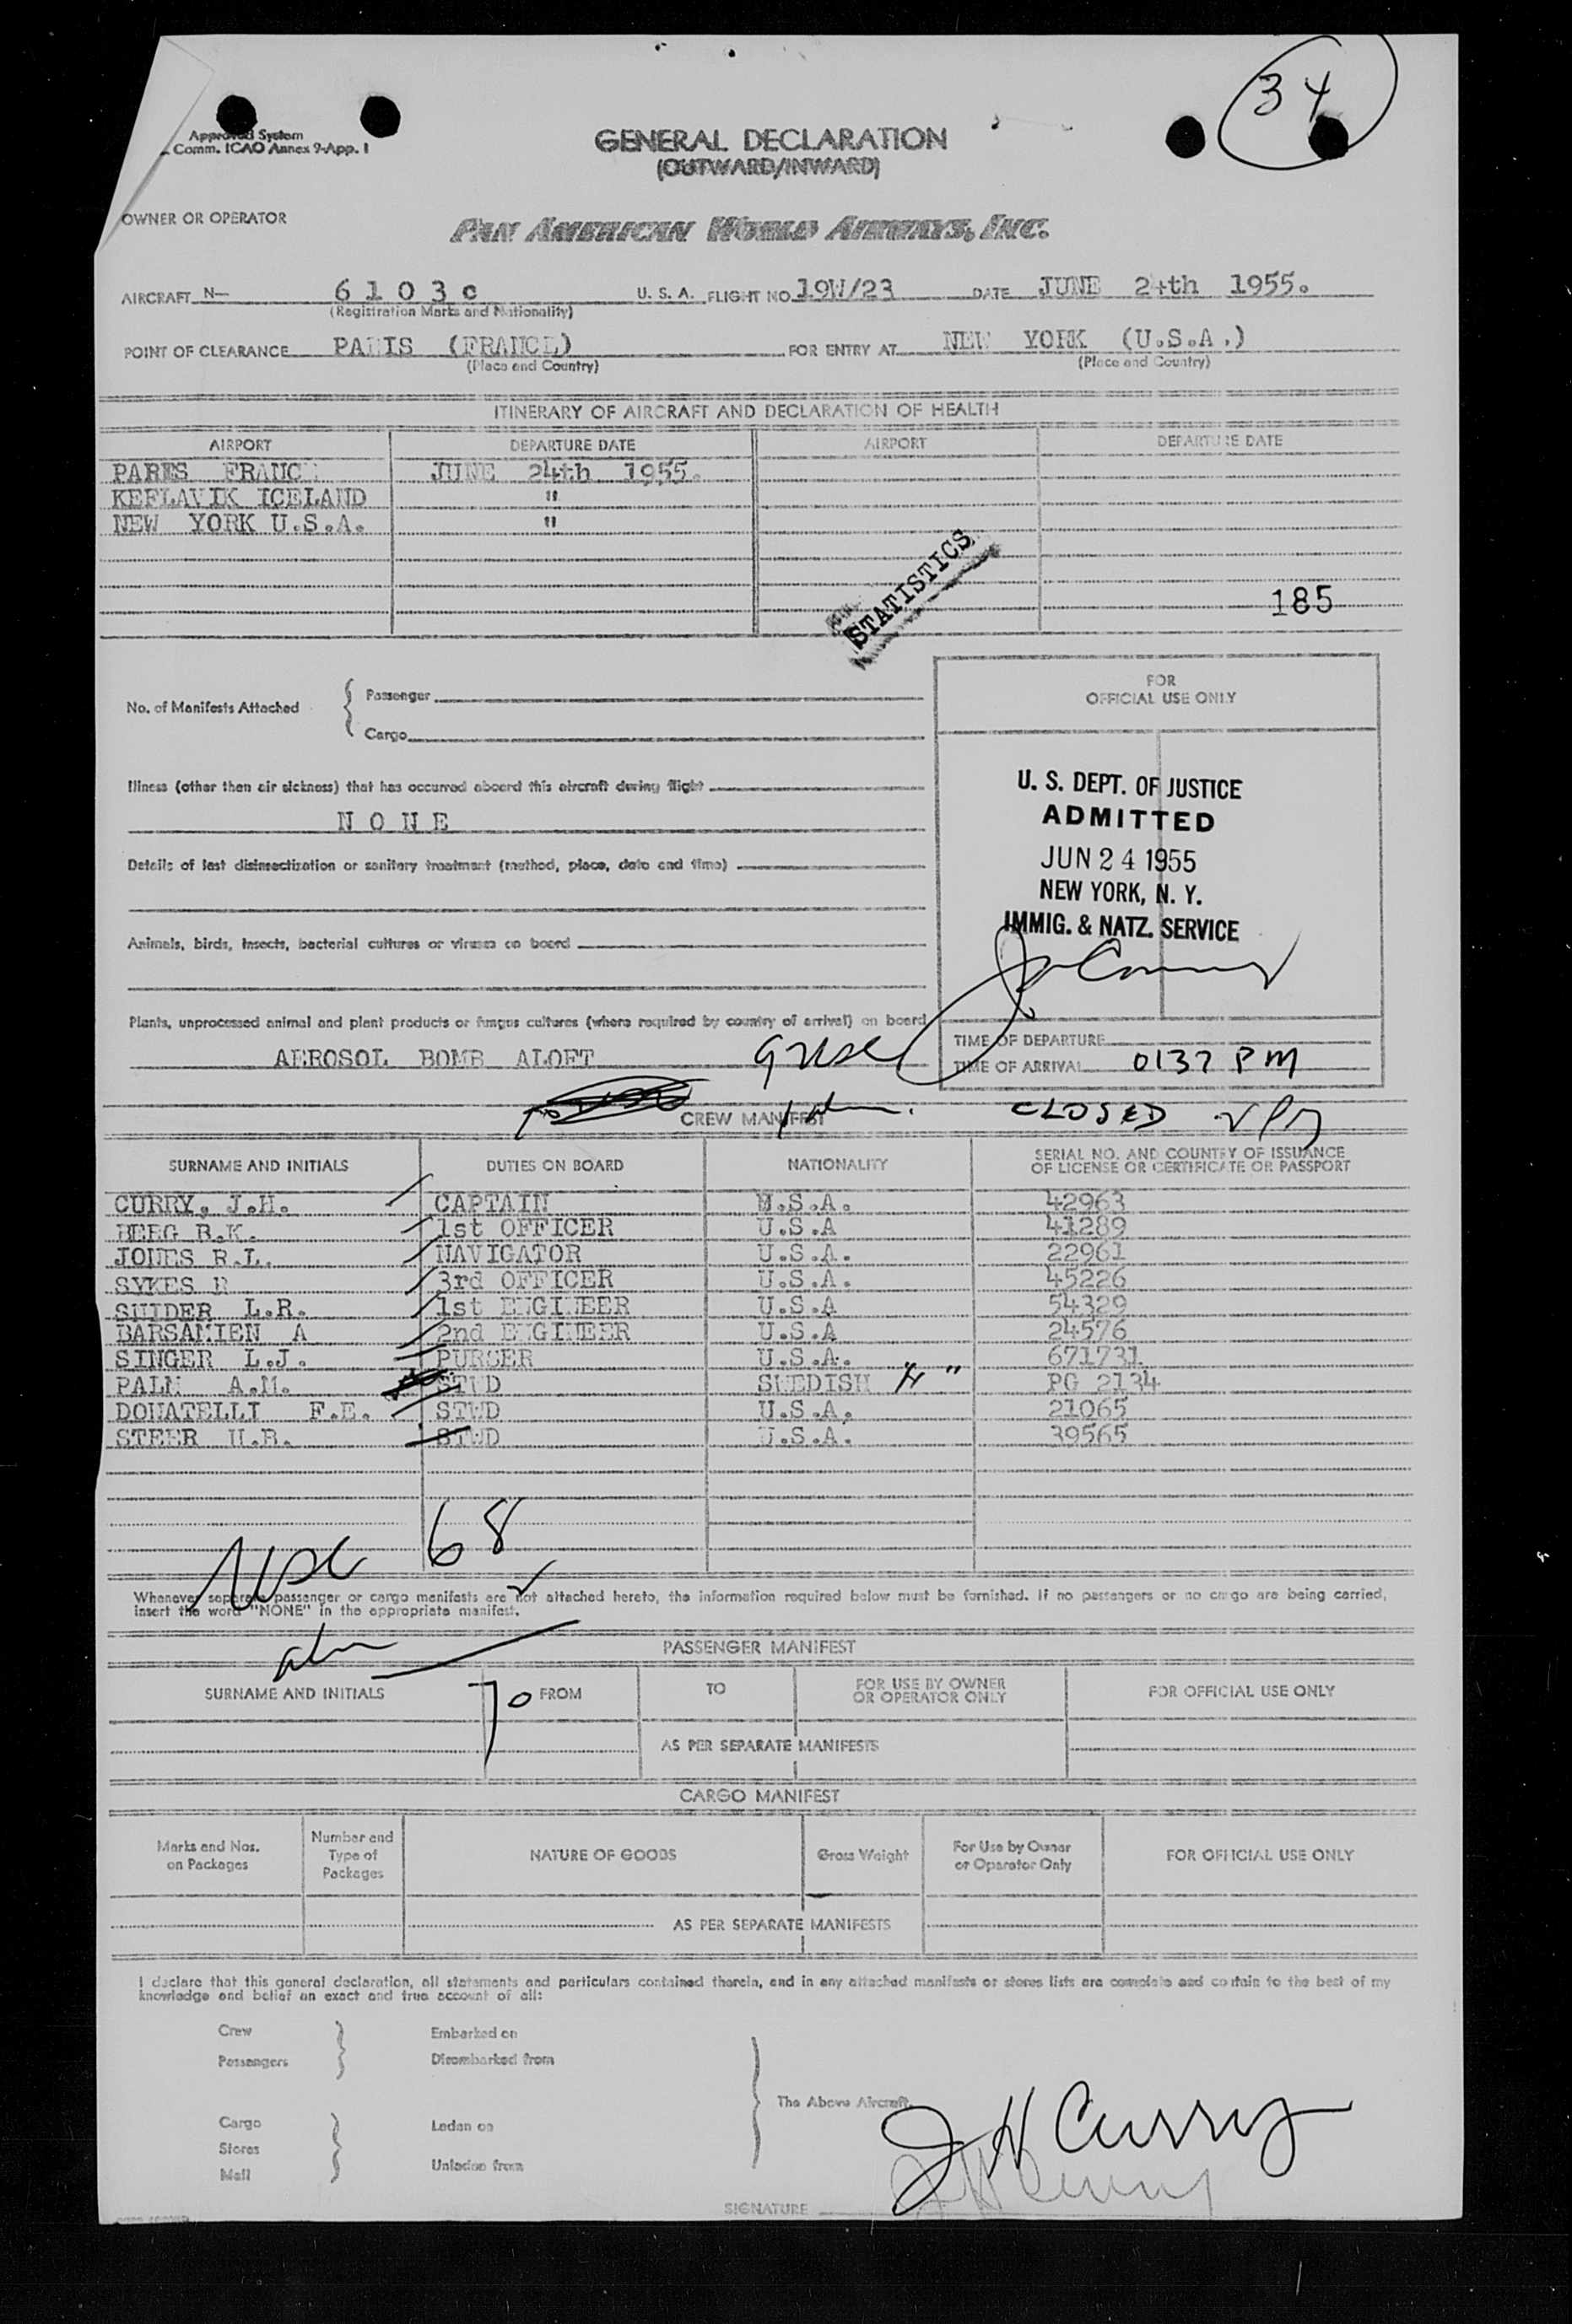 34
Approved System
Comm. ICAO Annex 9-App. 1
GENERAL DECLARATION
(OUTWARD/INWARD)
OWNER OR OPERATOR
PAN AMERICAN WORLD AIRWAYS, INC.
AIRCRAFT N— 6 1 0 3 c U. S. A. FLIGHT NO 19W/23 DATE JUNE 24th 1955.
(Registration Marks and Nationality)
POINT OF CLEARANCE PARIS (FRANCE) FOR ENTRY AT NEW YORK (U.S.A.)
(Place and Country) (Place and Country)
ITINERARY OF AIRCRAFT AND DECLARATION OF HEALTH
AIRPORT DEPARTURE DATE AIRPORT DEPARTURE DATE
PARIS FRANCE JUNE 24th 1955.
KEFLAVIK ICELAND "
NEW YORK U.S.A. "
STATISTICS
185
No. of Manifests Attached { Passenger
Cargo
FOR
OFFICIAL USE ONLY
Illness (other then air sickness) that has occurred aboard this aircraft during flight
N O N E
Details of last disinsectization or sanitary treatment (method, place, date and time)
Animals, birds, insects, bacterial cultures or viruses on board
U. S. DEPT. OF JUSTICE
ADMITTED
JUN 24 1955
NEW YORK, N. Y.
IMMIG. & NATZ. SERVICE
Plants, unprocessed animal and plant products or fungus cultures (where required by country of arrival) on board
AEROSOL BOMB ALOFT 9 USC
TIME OF DEPARTURE
TIME OF ARRIVAL 0137 PM
CREW MANIFEST 1 alm. CLOSED 2 PM
SURNAME AND INITIALS DUTIES ON BOARD NATIONALITY SERIAL NO. AND COUNTRY OF ISSUANCE
OF LICENSE OR CERTIFICATE OR PASSPORT
CURRY, J.H. CAPTAIN U.S.A. 42963
BEEG R.K. 1st OFFICER U.S.A 41289
JONES R.L. NAVIGATOR U.S.A. 22961
SYKES 3rd OFFICER U.S.A. 45226
SNIDER L.R. 1st ENGINEER U.S.A 54329
BARSAMIEN A 2nd ENGINEER U.S.A 24576
SINGER L.J. PURSER U.S.A. 671731
PALM A.M. STWD SWEDISH PG 2134
DONATELLI F.E. STWD U.S.A. 21065
STEER STWD U.S.A. 39565
USC 68
Whenever separate passenger or cargo manifests are not attached hereto, the information required below must be furnished. If no passengers or no cargo are being carried,
insert the word "NONE" in the appropriate manifest.
alm
PASSENGER MANIFEST
SURNAME AND INITIALS 70 FROM TO FOR USE BY OWNER
OR OPERATOR ONLY FOR OFFICIAL USE ONLY
AS PER SEPARATE MANIFESTS
CARGO MANIFEST
Marks and Nos.
on Packages Number and
Type of
Packages NATURE OF GOODS Gross Weight For Use by Owner
or Operator Only FOR OFFICIAL USE ONLY
AS PER SEPARATE MANIFESTS
I declare that this general declaration, all statements and particulars contained therein, and in any attached manifests or stores lists are complete and contain to the best of my
knowledge and belief an exact and true account of all:
Crew Embarked on
Passengers Disembarked from
The Above Aircraft
Cargo Laden on
Stores
Mail Unladen from
J H Curry
SIGNATURE